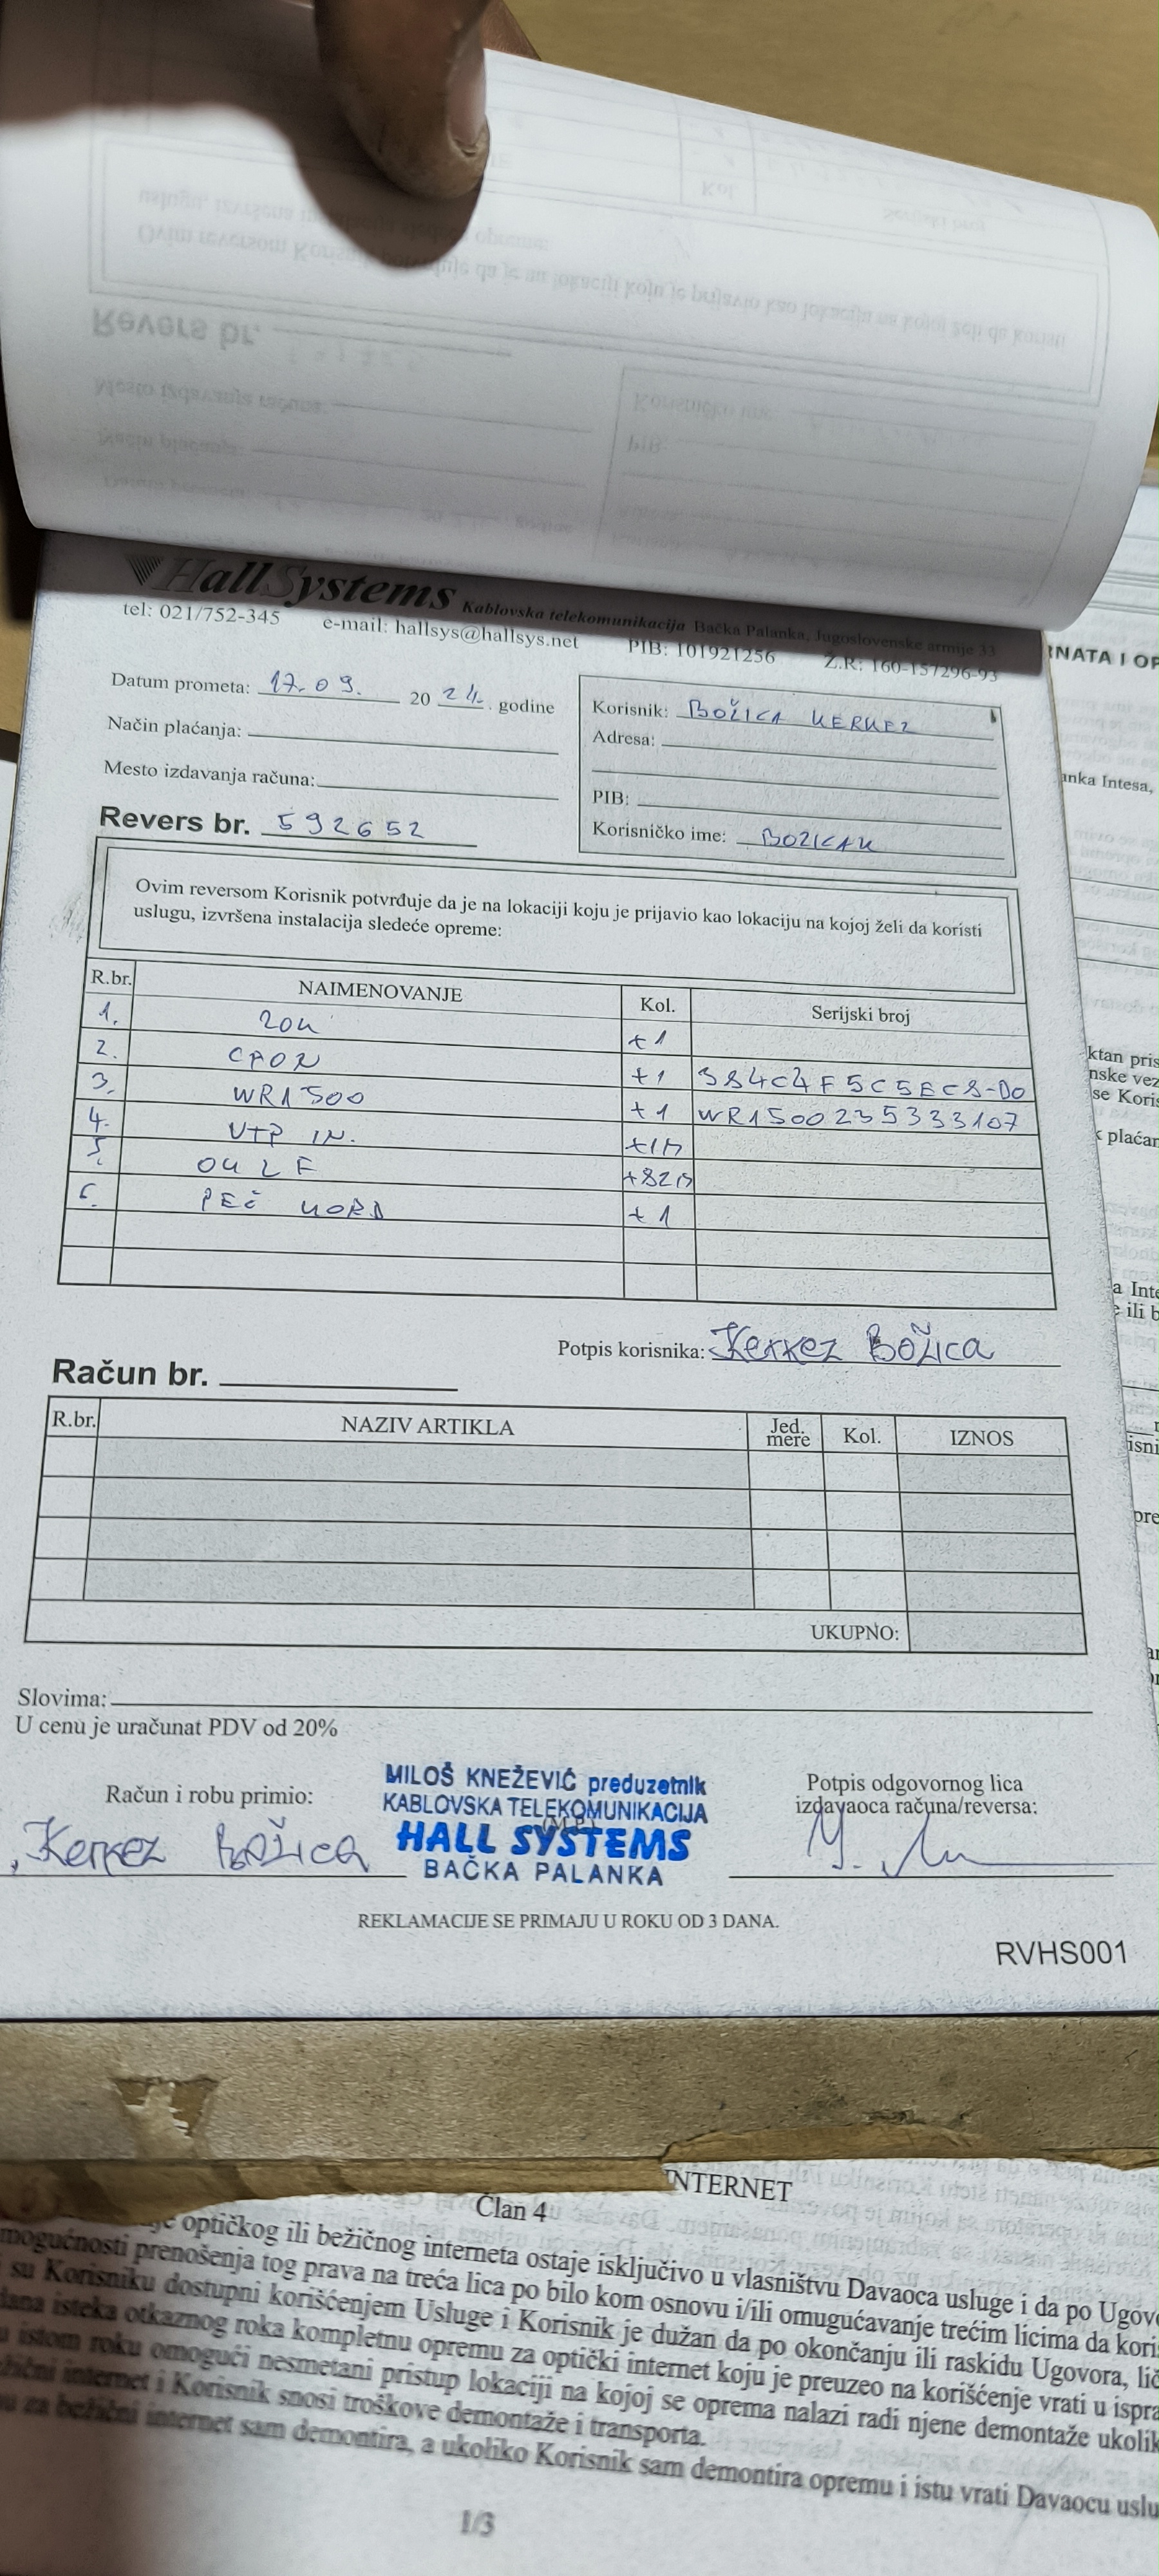 HallSystems Kablovska telekomunikacija Bačka Palanka, Jugoslovenske armije 33
tel: 021/752-345 e-mail: hallsys@hallsys.net PIB: 101921256 Ž.R: 160-157296-93
Datum prometa: 17.09. 2024. godine
Način plaćanja:
Mesto izdavanja računa:
Revers br. 592652
Korisnik: BOŽICA KERKEZ
Adresa:
PIB:
Korisničko ime: BOZICAK
Ovim reversom Korisnik potvrđuje da je na lokaciji koju je prijavio kao lokaciju na kojoj želi da koristi
uslugu, izvršena instalacija sledeće opreme:
R.br. NAIMENOVANJE Kol. Serijski broj
1. ZOK +1
2. CPON +1 384C4F5C5EC8-D0
3. WR1500 +1 WR1500235333107
4. UTP IN. +1m
5. OK LF +82m
6. PEČ KORD +1
Potpis korisnika: Kerkez Božica
Račun br.
R.br. NAZIV ARTIKLA Jed. mere Kol. IZNOS
UKUPNO:
Slovima:
U cenu je uračunat PDV od 20%
Račun i robu primio:
Kerkez Božica
MILOŠ KNEŽEVIĆ preduzetnik
KABLOVSKA TELEKOMUNIKACIJA
(M.P.)
HALL SYSTEMS
BAČKA PALANKA
Potpis odgovornog lica
izdavaoca računa/reversa:
REKLAMACIJE SE PRIMAJU U ROKU OD 3 DANA.
RVHS001
INTERNET
Član 4
optičkog ili bežičnog interneta ostaje isključivo u vlasništvu Davaoca usluge i da po Ugovo
mogućnosti prenošenja tog prava na treća lica po bilo kom osnovu i/ili omugućavanje trećim licima da kori
su Korisniku dostupni korišćenjem Usluge i Korisnik je dužan da po okončanju ili raskidu Ugovora, lič
dana isteka otkaznog roka kompletnu opremu za optički internet koju je preuzeo na korišćenje vrati u ispra
u istom roku omogući nesmetani pristup lokaciji na kojoj se oprema nalazi radi njene demontaže ukolik
internet i Korisnik snosi troškove demontaže i transporta.
za bežični internet sam demontira, a ukoliko Korisnik sam demontira opremu i istu vrati Davaocu uslu
1/3